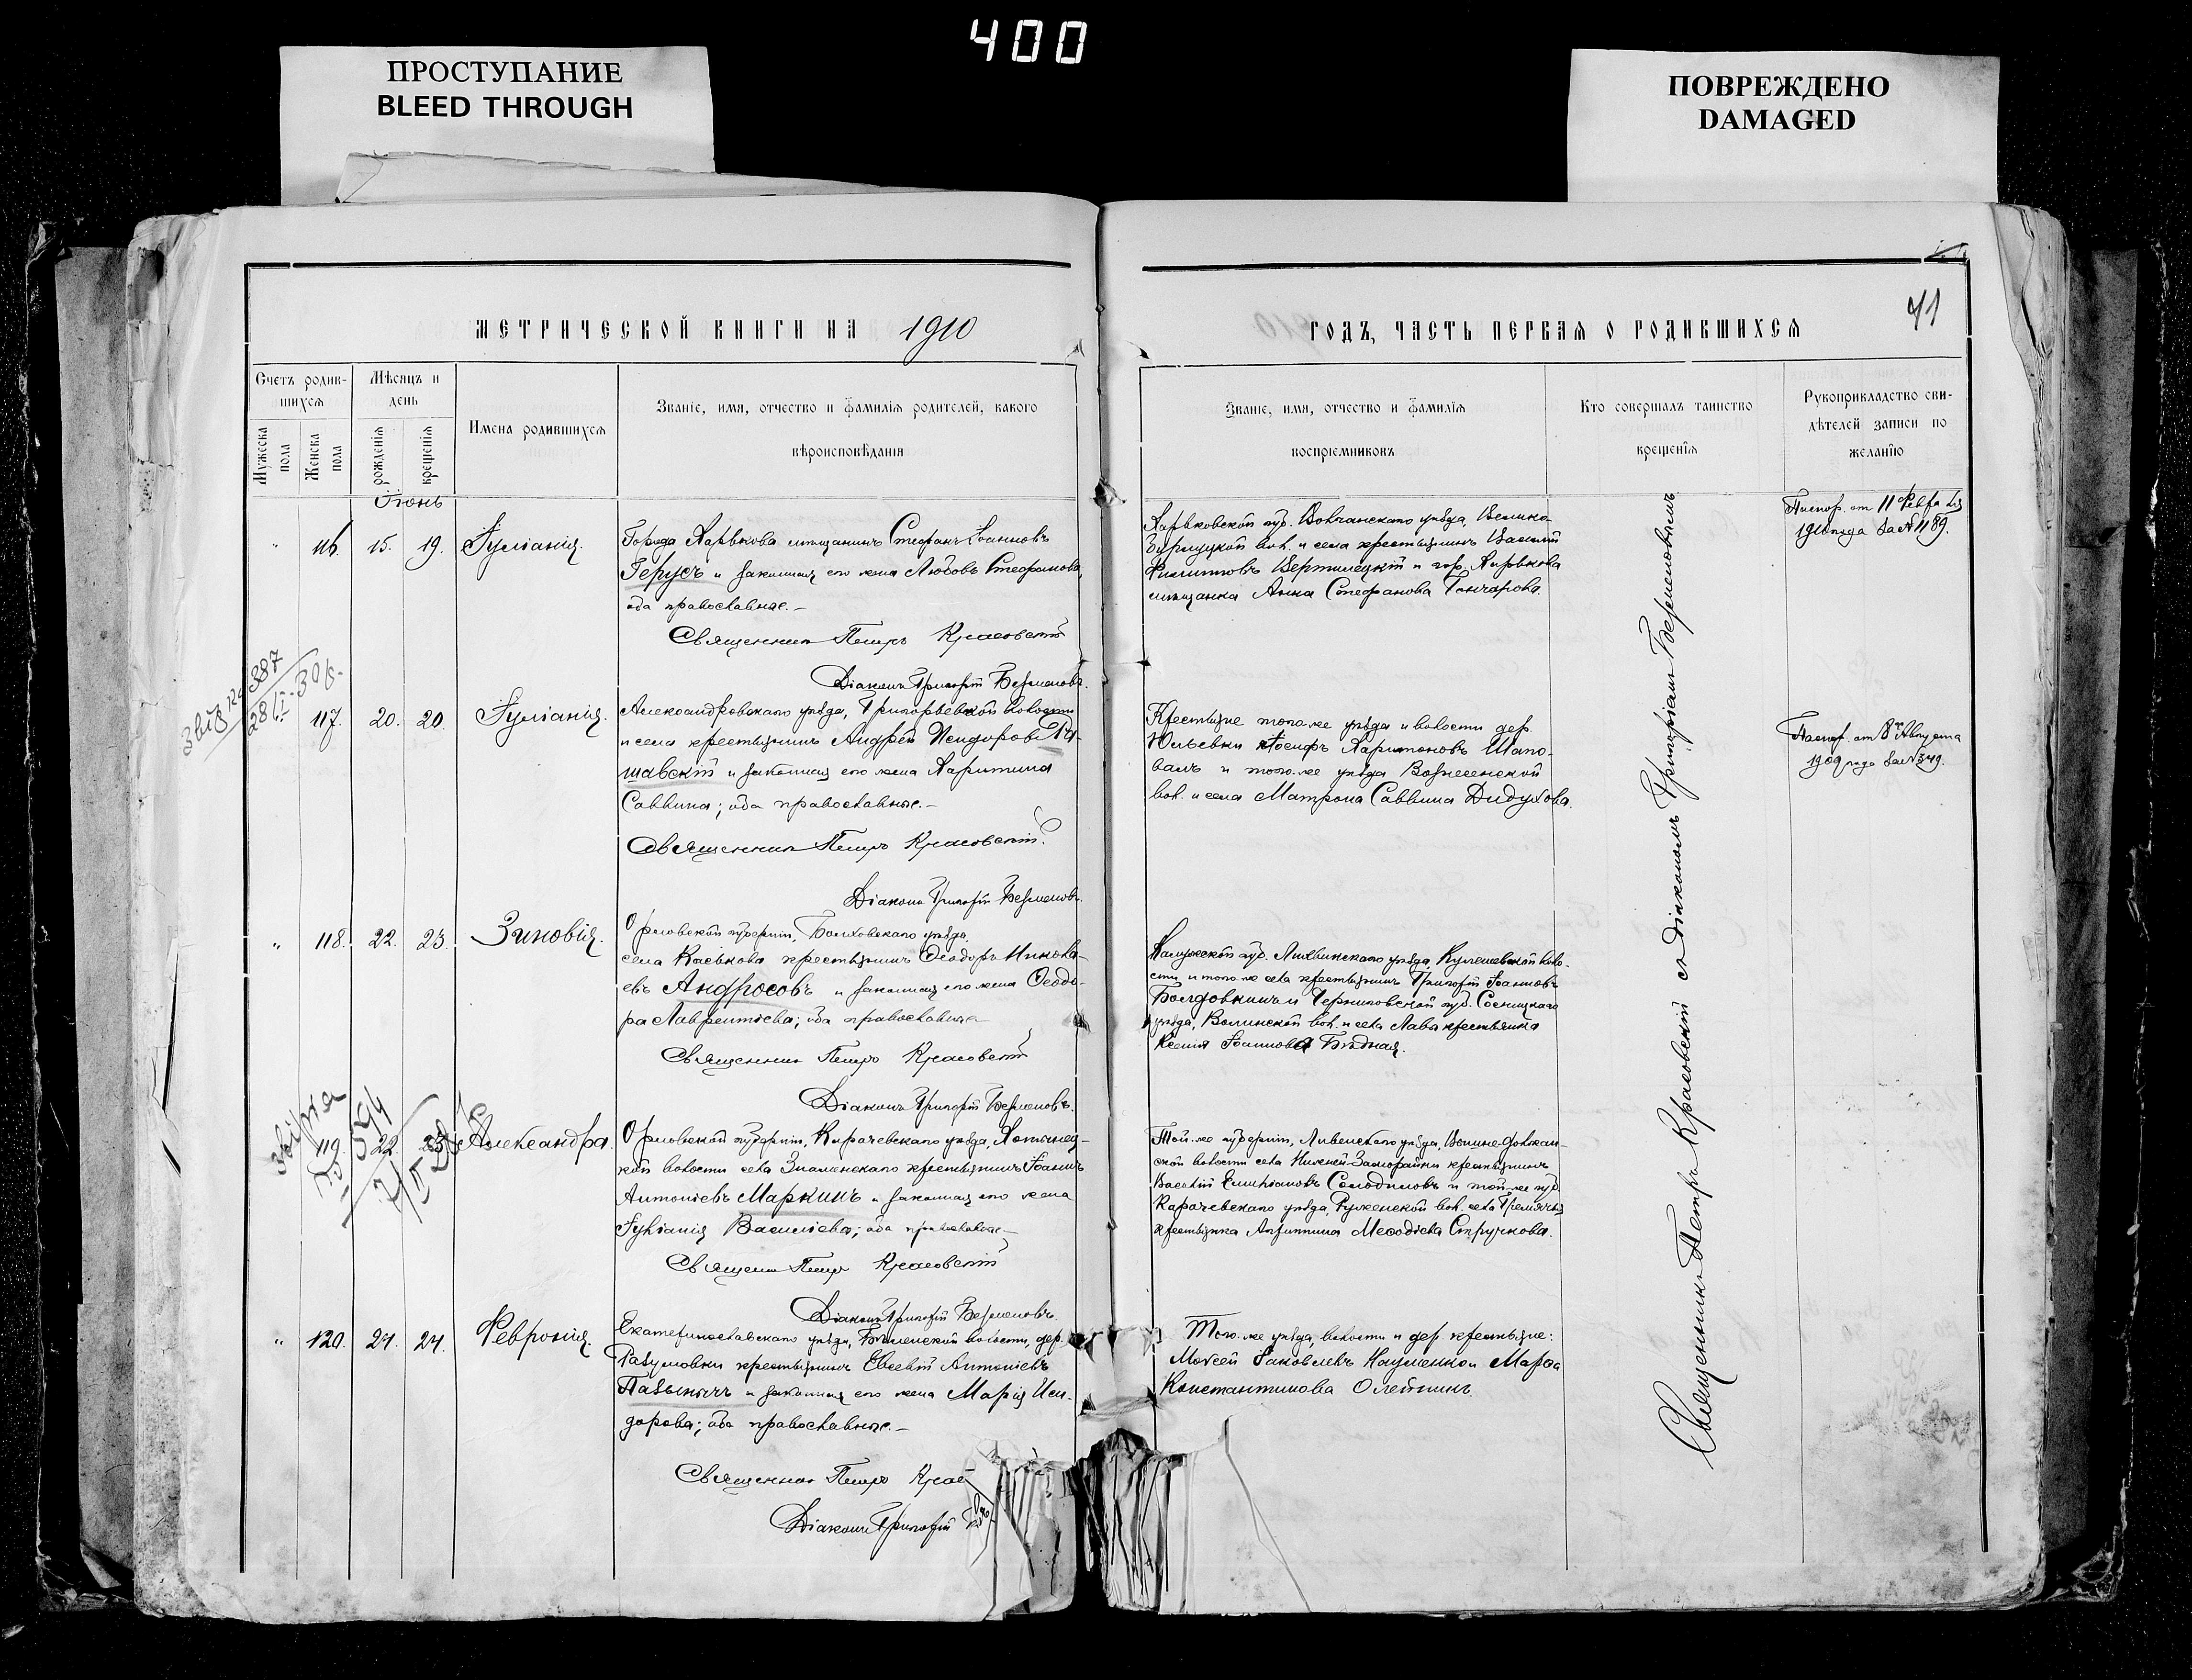 400
ПРОСТУПАНИЕ
BLEED THROUGH
ПОВРЕЖДЕНО
DAMAGED
МЕТРИЧЕСКОЙ КНИГИ НА 1910
Счетъ родив-
шихся
Мужеска
пола
Женска
пола
Мѣсяцъ и
день
рожденія
крещенія
Имена родившихся
Званіе, имя, отчество и фамилія родителей, какого
вѣроисповѣданія
Іюнь
" 116. 15. 19. Іуліанія.
Города Харькова мѣщанинъ Стефанъ Іоанновъ
Герусъ и законная его жена Любовь Стефанова,
оба православные.-
Священникъ Петръ Красовскій
Діаконъ Григорій Берменовъ.
117. 20. 20. Іуліанія.
Александровскаго уѣзда, Григорьевской волости
и села крестьянинъ Андрей Исидоровъ
шавскій и законная его жена Харитина
Саввина; оба православные.-
Священникъ Петръ Красовскій.
Діаконъ Григорій Берменовъ.
" 118. 22. 23. Зиновія.
Орловской губерніи, Болховскаго уѣзда,
села Касьнова крестьянинъ Ѳеодоръ Никола-
евъ Андросовъ и законная его жена Ѳеодо-
ра Лаврентіева; оба православные
Священникъ Петръ Красовскій
Діаконъ Григорій Берменовъ.
119. 22. 23. Александра.
Орловской губерніи, Карачевскаго уѣзда, Хотынец-
кой волости села Знаменскаго крестьянинъ Іоаннъ
Антоніевъ Маркинъ и законная его жена
Іуліанія Василіева; оба православные
Священникъ Петръ Красовскій
Діаконъ Григорій Берменовъ.
" 120. 24. 24. Февронія.
Екатеринославскаго уѣзда, волости, дер.
Разумовки крестьянинъ Евсевій Антоніевъ
и законная его жена Марія Иси-
дорова; оба православные.-
Священникъ Петръ Крас
Діаконъ Григорій
ГОДЪ, ЧАСТЬ ПЕРВАЯ О РОДИВШИХСЯ
41
Званіе, имя, отчество и фамилія
воспріемниковъ
Кто совершалъ таинство
крещенія
Рукоприкладство сви-
дѣтелей записи по
желанію
Харьковской губ. Волчанскаго уѣзда, Велико-
Бурлуцкой вол. и села крестьянинъ Василій
Филипповъ Вертилецкій и гор. Харькова
мѣщанка Анна Стефанова Гончарова.
Паспор. от 11 Февраля
1910 года за № 1189.
Крестьяне того-же уѣзда и волости дер.
Юльевки Іосифъ Харитоновъ Шапо-
валъ и того-же уѣзда Вознесенской
вол. и села Матрона Саввина Дидухова.
Паспор. от 8го Августа
1909 года за № 349.
Калужской губ. Лихвинскаго уѣзда, Кулешовской воло-
сти и того-же села крестьянинъ Григорій Іоанновъ
Болдовкинъ и Черниговской губ. Сосницкаго
уѣзда, Волынской вол. и села Лава крестьянка
Ксенія Іоаннова Бѣдная.
Той-же губерніи, Ливенскаго уѣзда,
волости села Нижней-Замарайки крестьянинъ
Василій Емиліановъ Солодиловъ и той-же губ.
Карачевскаго уѣзда, Руженской вол. села
крестьянка Агриппина Меѳодіева Стручкова.
Того-же уѣзда, волости и дер. крестьяне:
Моѵсей Іаковлевъ Науменко и Марѳа
Константинова Олейникъ.
Священникъ Петръ Красовскій съ діакономъ Григоріемъ Берменовымъ